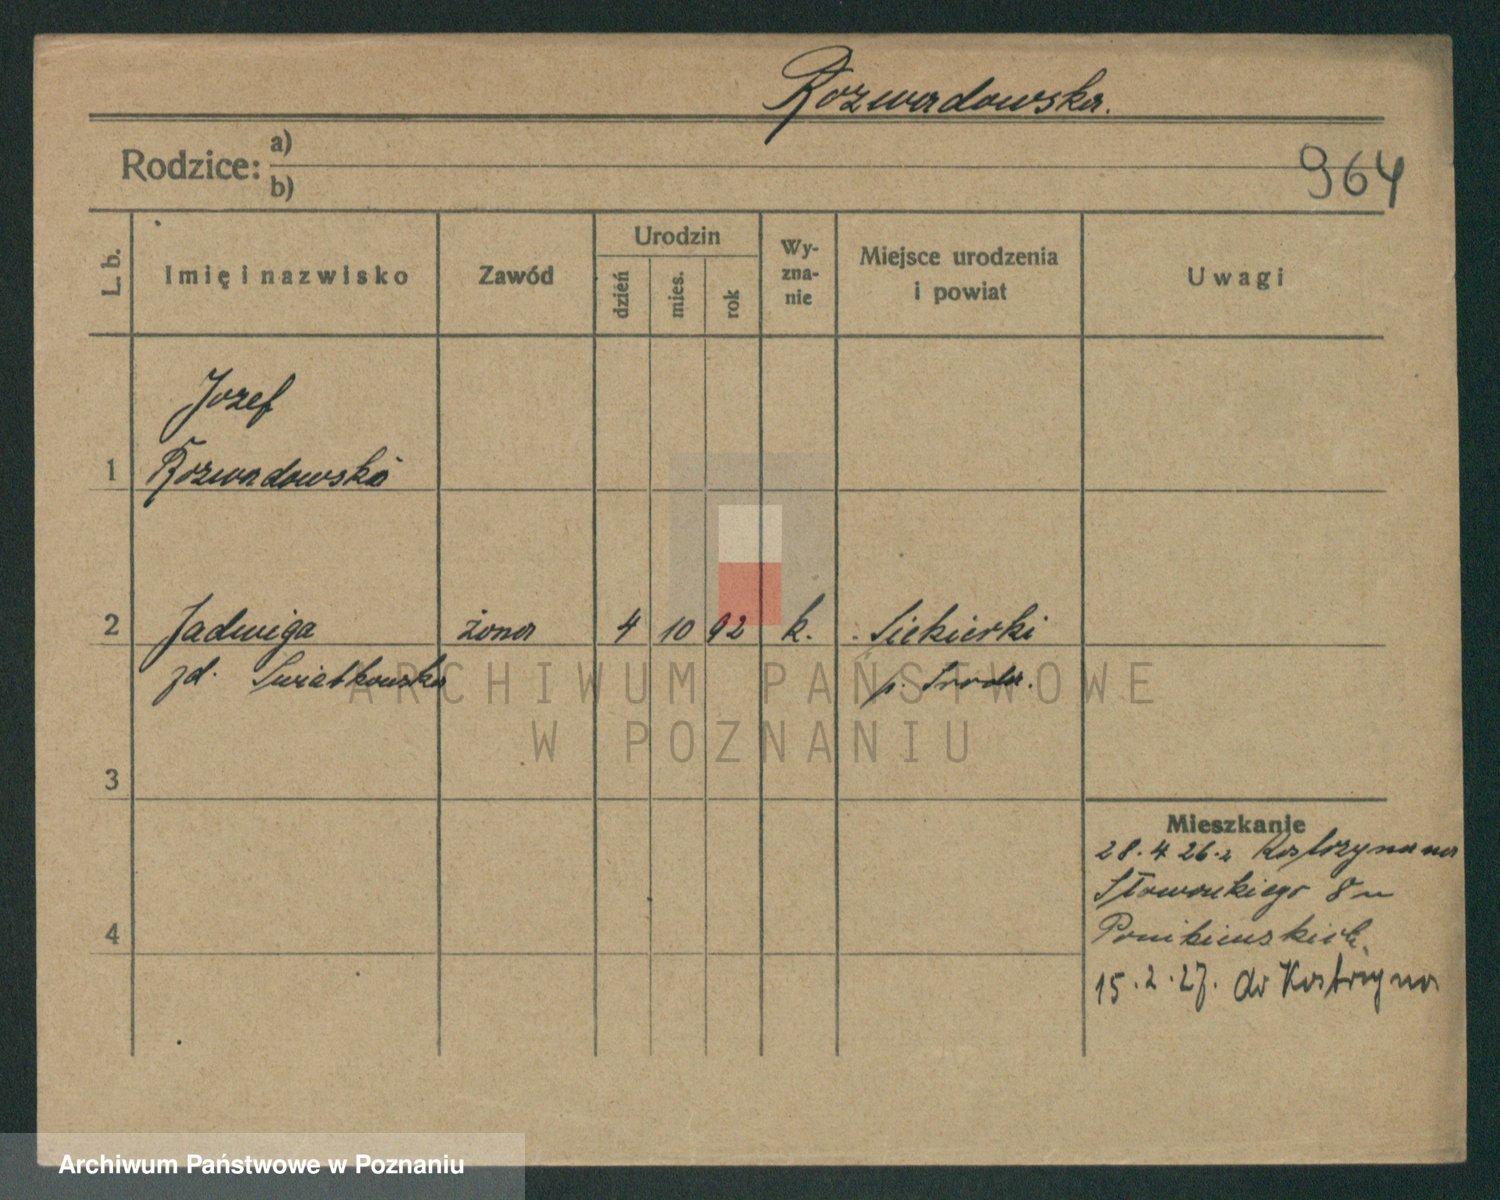 Rozwadowska.
Rodzice: a)
b)
964
L. b. Imię i nazwisko Zawód Urodzin dzień mies. rok Wy-zna-nie Miejsce urodzenia i powiat Uwagi
Jozef
1 Rozwadowska
2 Jadwiga żona 4 10 92 k. Siekierki
zd. Swiatkowska p. Sroda.
ARCHIWUM PAŃSTWOWE
W POZNANIU
3
Mieszkanie
28. 4 26. z Kostrzyna na
Słowackiego 8 u
4 Ponikiewskich.
15. 2. 27. do Kostrzyna
Archiwum Państwowe w Poznaniu